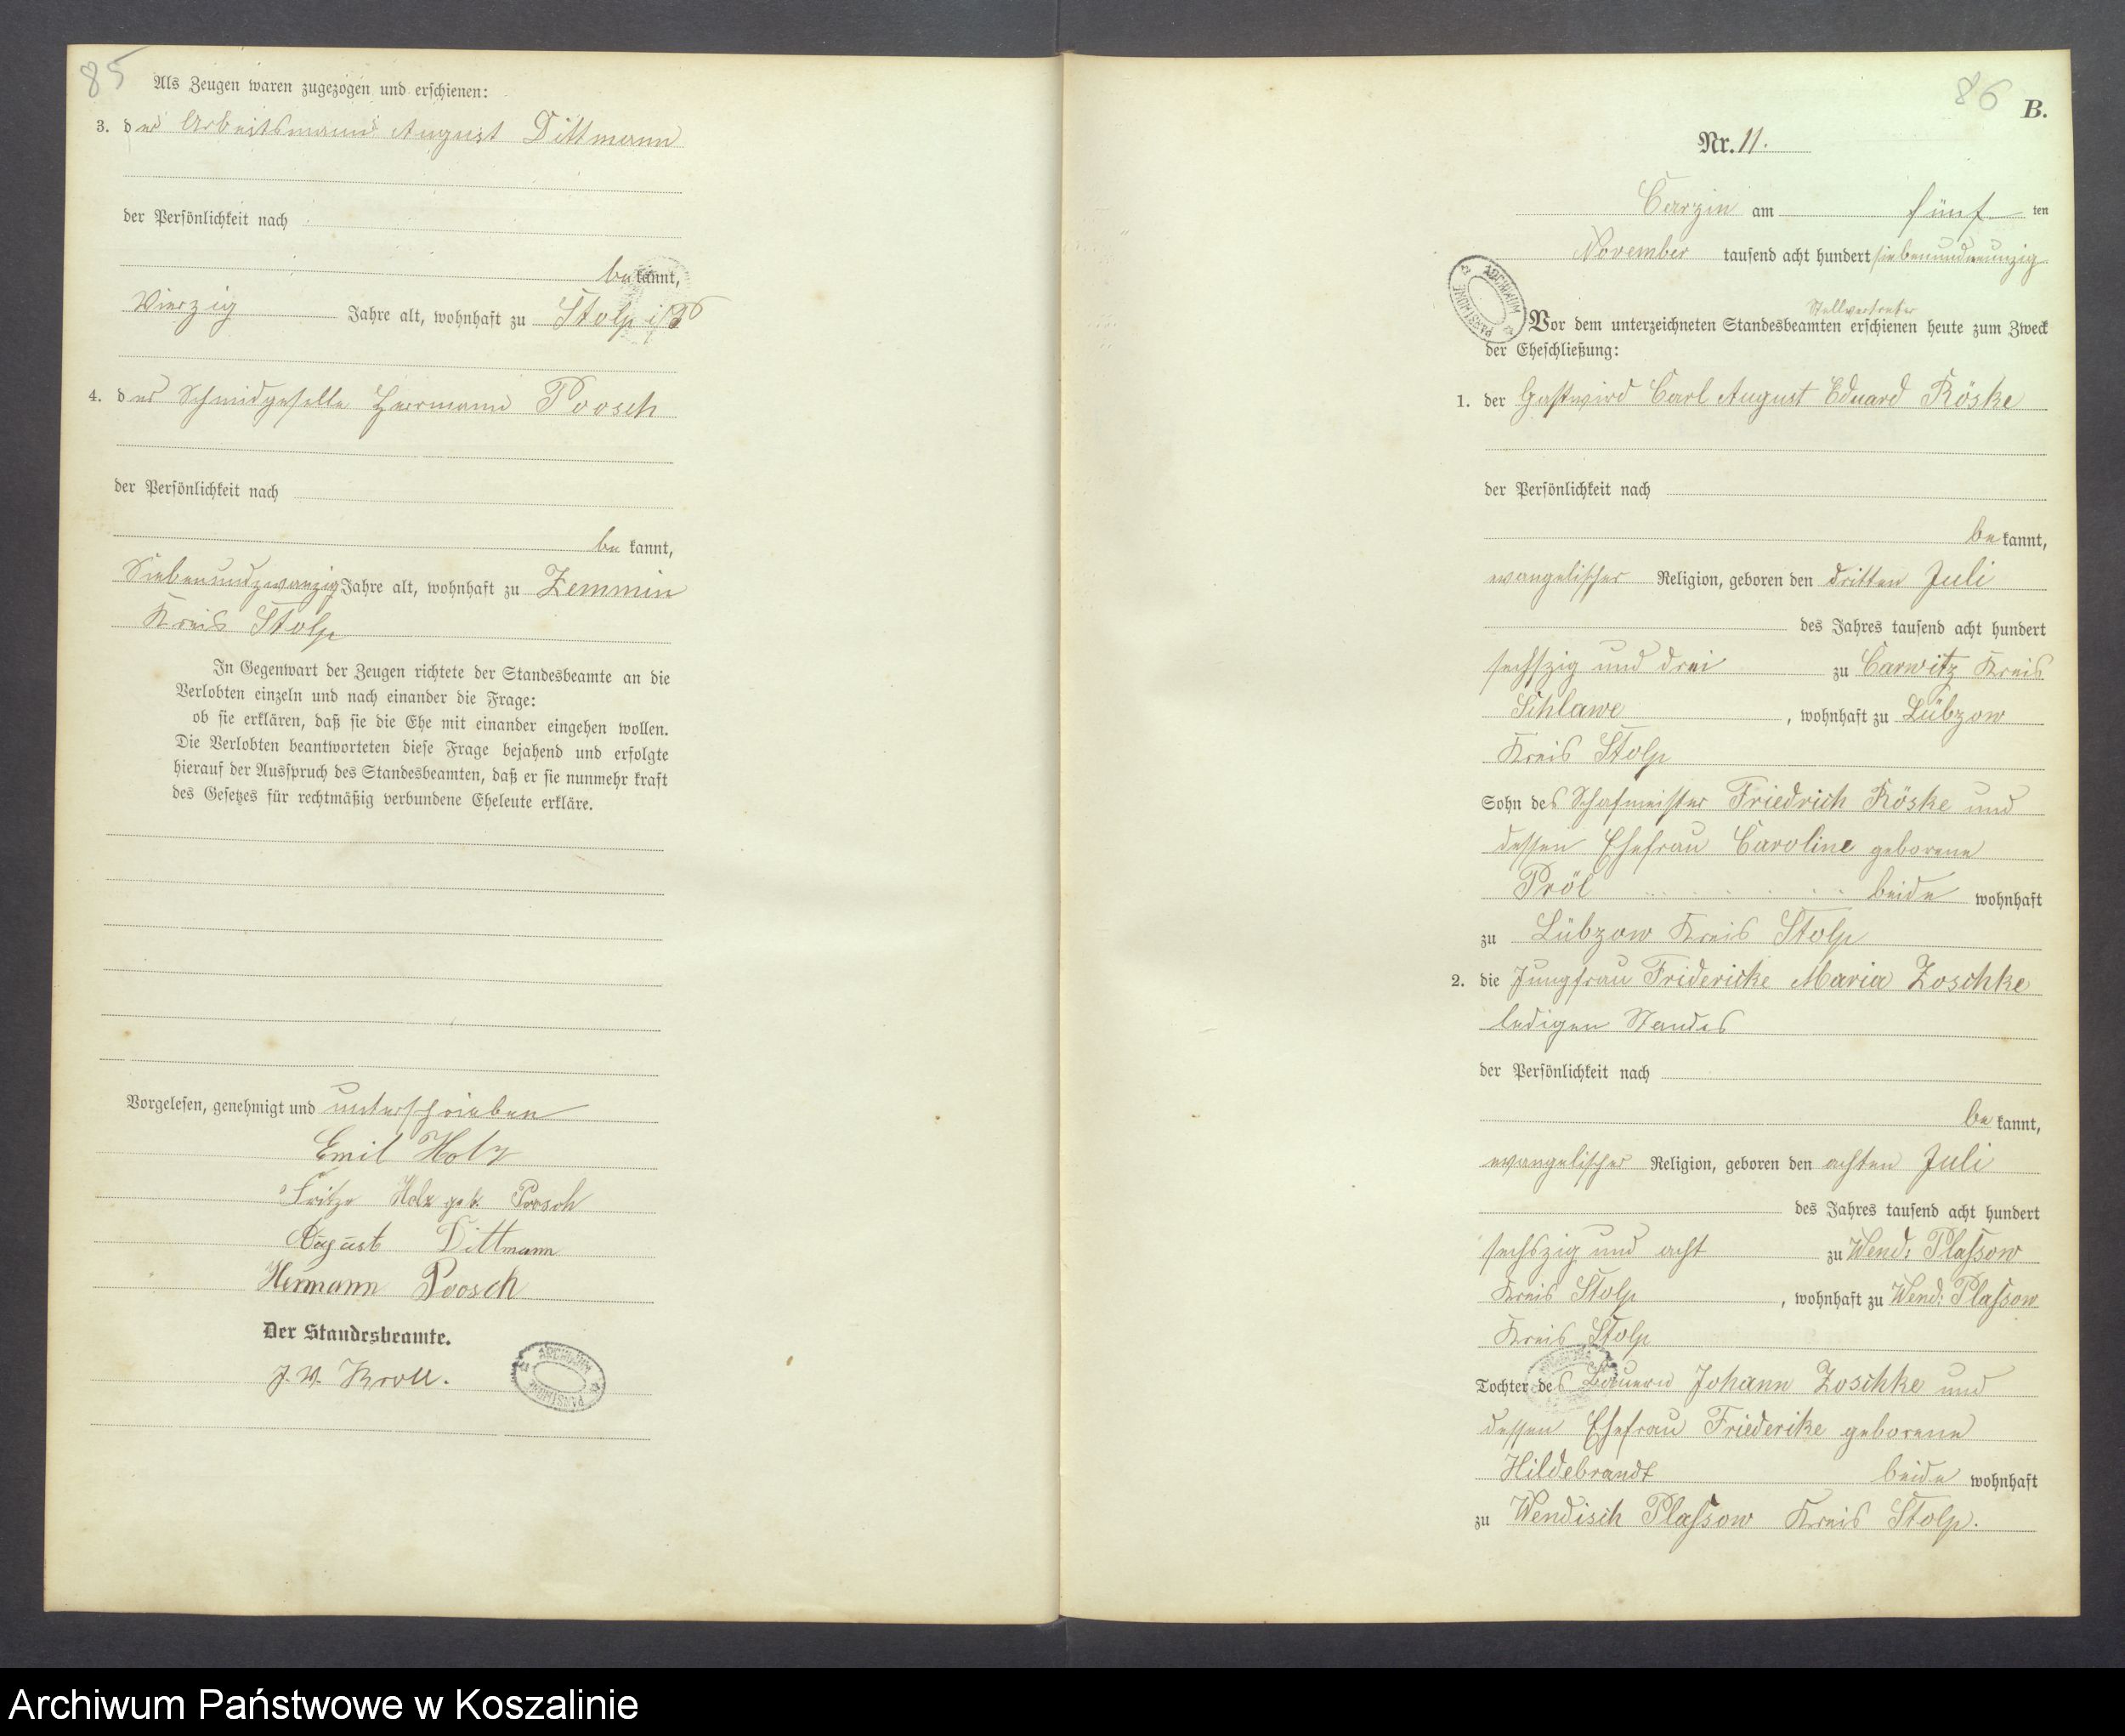 85
Als Zeugen waren zugezogen und erschienen:
3. der Arbeitsmann August Dittmann
der Persönlichkeit nach
be kannt,
Vierzig Jahre alt, wohnhaft zu Stolp i/P
4. der Schmidgeselle Herrmann Poosch
der Persönlichkeit nach
be kannt,
Siebenundzwanzig Jahre alt, wohnhaft zu Zemmin
Kreis Stolp
In Gegenwart der Zeugen richtete der Standesbeamte an die
Verlobten einzeln und nach einander die Frage:
ob sie erklären, daß sie die Ehe mit einander eingehen wollen.
Die Verlobten beantworteten diese Frage bejahend und erfolgte
hierauf der Ausspruch des Standesbeamten, daß er sie nunmehr kraft
des Gesetzes für rechtmäßig verbundene Eheleute erkläre.
Vorgelesen, genehmigt und unterschrieben
Emil Holz
Fritze Holz geb. Poosch
August Dittmann
Hermann Poosch
Der Standesbeamte.
J. V. Kroll.
ARCHIWUM PAŃSTWOWE
86
B.
Nr. 11.
Carzin am fünf ten
November tausend acht hundert siebenundneunzig
Stellvertreter
Vor dem unterzeichneten Standesbeamten erschienen heute zum Zweck
der Eheschließung:
ARCHIWUM PAŃSTWOWE
1. der Gastwird Carl August Eduard Röske
der Persönlichkeit nach
be kannt,
evangelischer Religion, geboren den dritten Juli
des Jahres tausend acht hundert
sechszig und drei zu Carwitz Kreis
Schlawe, wohnhaft zu Lübzow
Kreis Stolp
Sohn des Schafmeister Friedrich Röske und
dessen Ehefrau Caroline geborene
Pröl beide wohnhaft
zu Lübzow Kreis Stolp
2. die Jungfrau Fridericke Maria Zoschke
ledigen Standes
der Persönlichkeit nach
be kannt,
evangelischer Religion, geboren den achten Juli
des Jahres tausend acht hundert
sechszig und acht zu Wend: Plassow
Kreis Stolp, wohnhaft zu Wend: Plassow
Kreis Stolp
Tochter des Bauern Johann Zoschke und
dessen Ehefrau Friederike geborene
Hildebrandt beide wohnhaft
zu Wendisch Plassow Kreis Stolp.
Archiwum Państwowe w Koszalinie